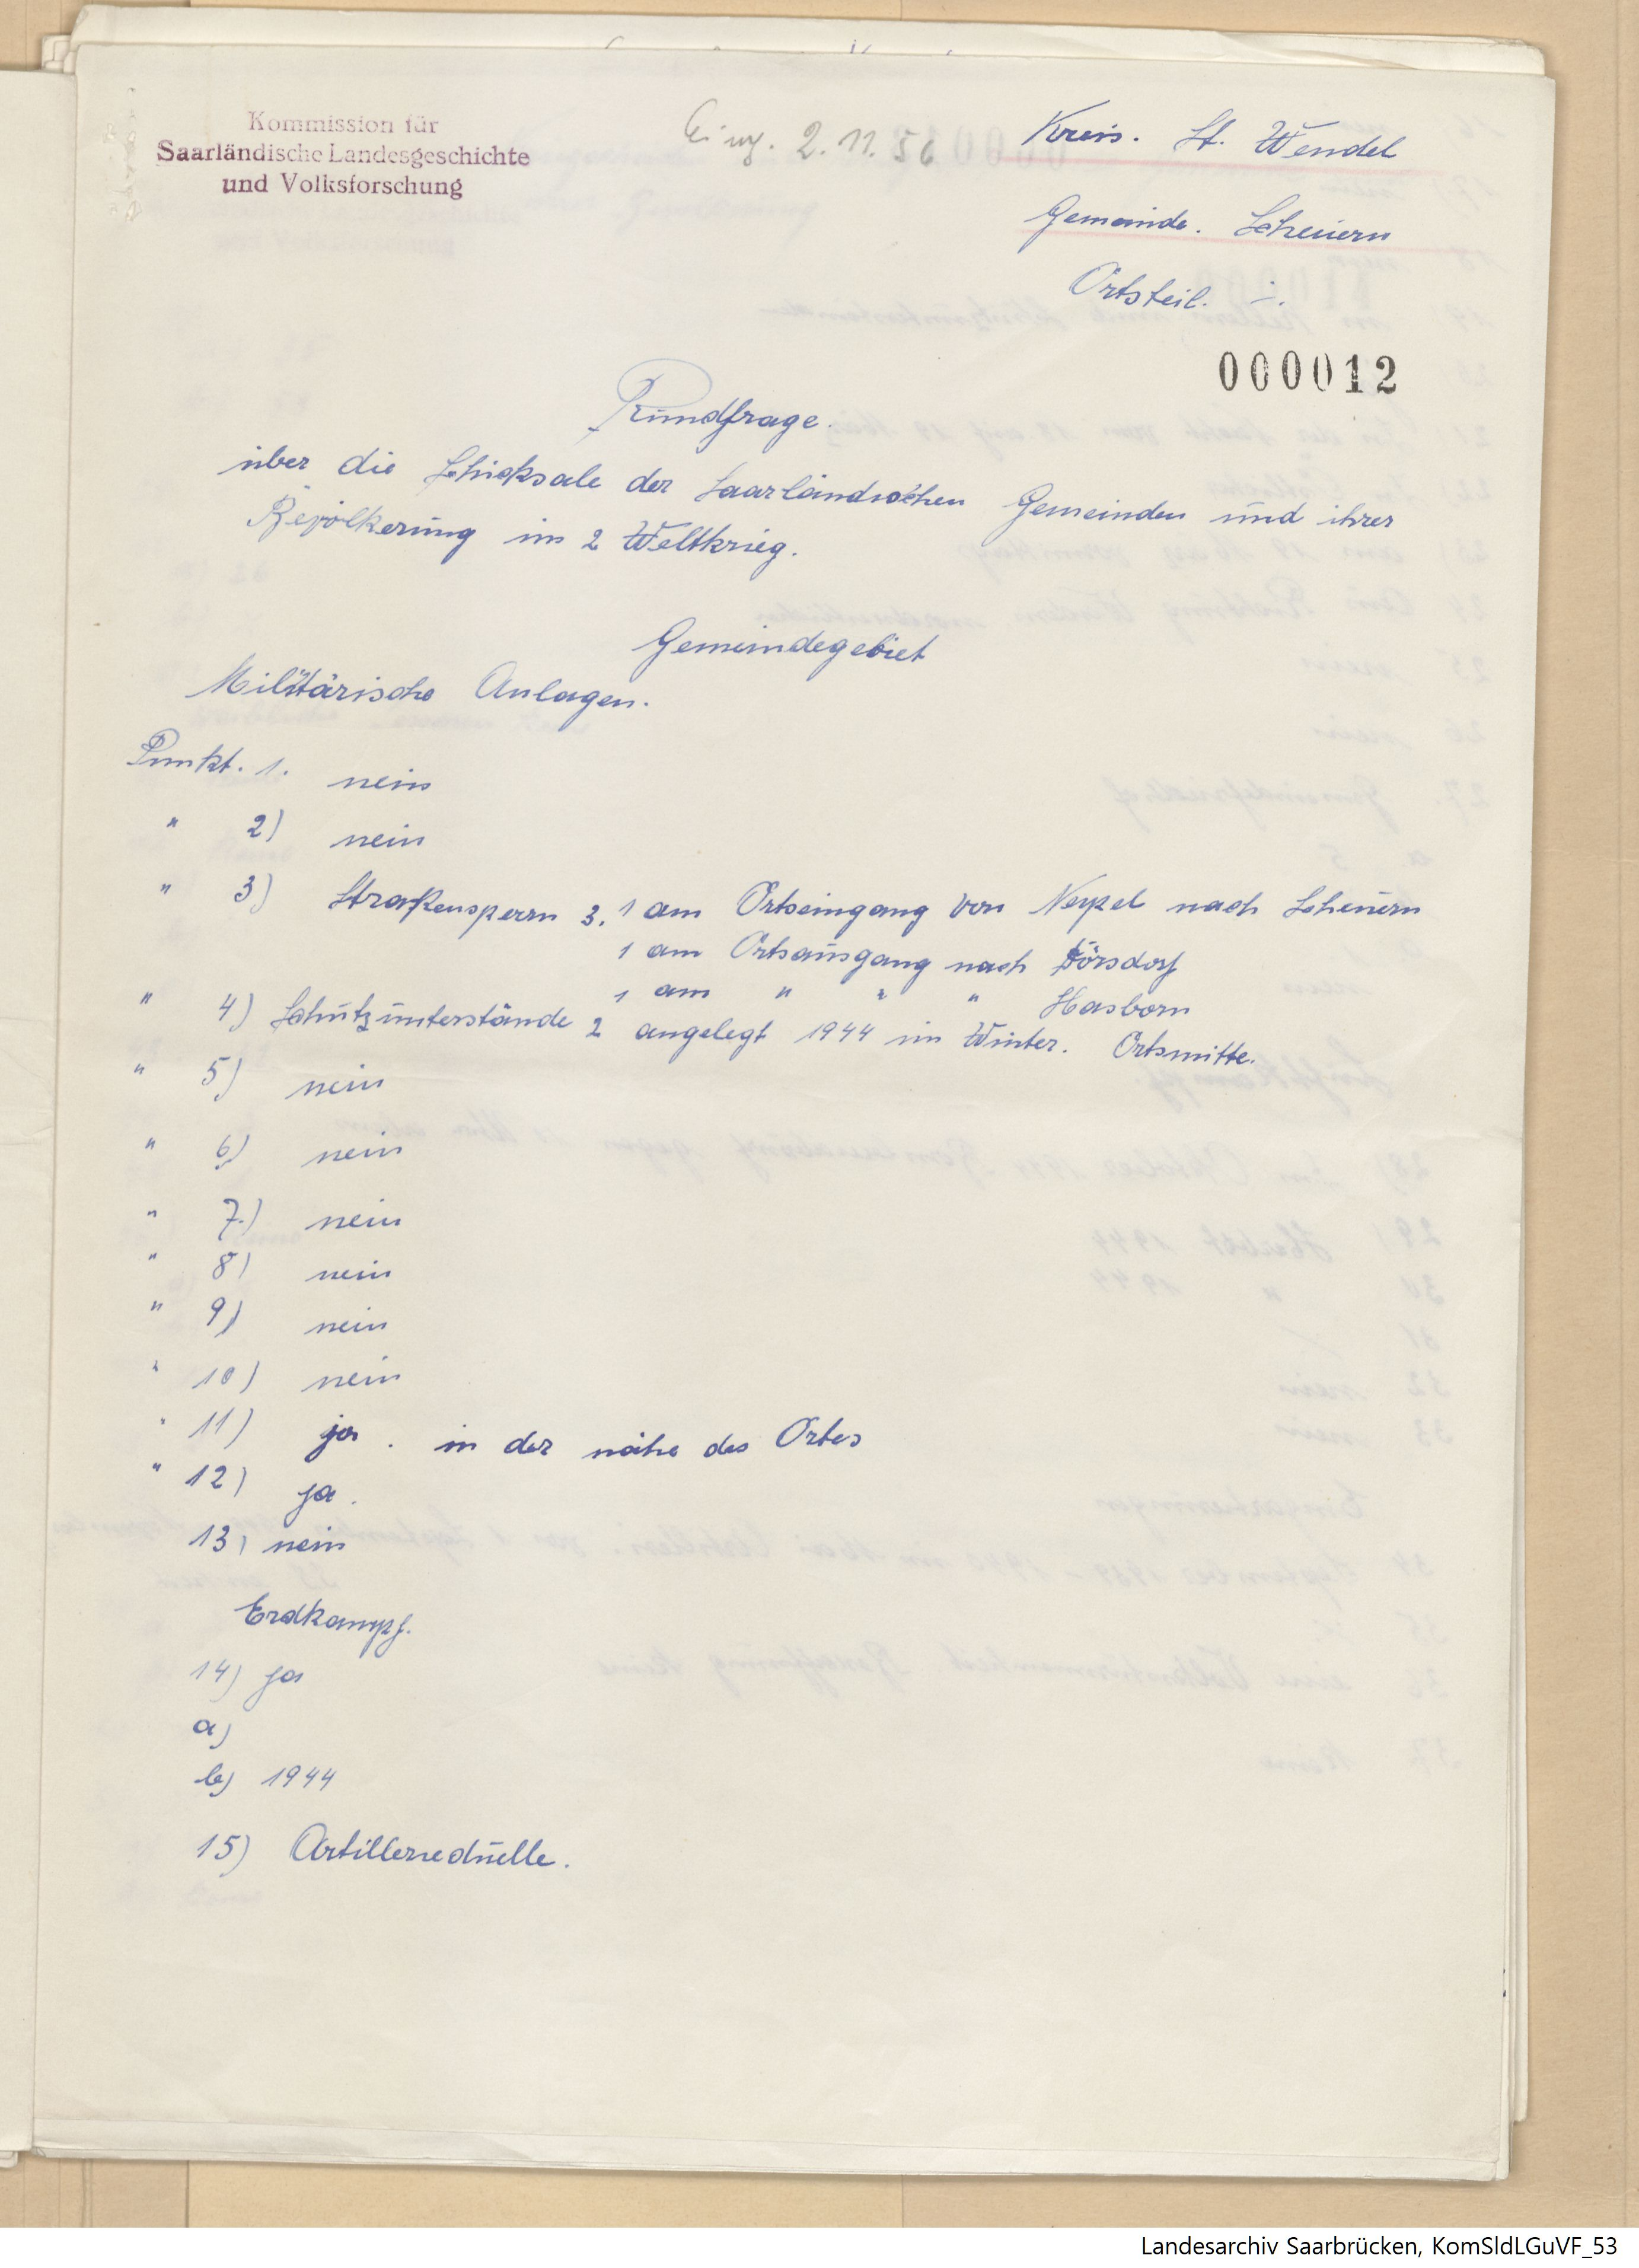 Kommission für
Saarländische Landesgeschichte
und Volksforschung
Eing. 2.11.56
Kreis. St. Wendel
Gemeinde. Scheuern
Ortsteil. -.
000012
Rundfrage.
über die Schicksale der Saarländischen Gemeinden und ihrer
Bevölkerung im 2 Weltkrieg.
Gemeindegebiet
Militärische Anlagen.
Punkt. 1. nein
" 2) nein
" 3) Straßensperrn 3. 1 am Ortseingang von Neipel nach Scheuern
1 am Ortsausgang nach Dörsdorf
1 am " " " Hasborn
" 4) Schutzunterstände 2 angelegt 1944 im Winter. Ortsmitte.
" 5) nein
" 6) nein
" 7.) nein
" 8) nein
" 9) nein
" 10) nein
" 11) ja . in der nähe des Ortes
" 12) ja .
13) nein
Erdkampf.
14) ja
a)
b) 1944
15) Artillerieduelle.
Landesarchiv Saarbrücken, KomSldLGuVF_53